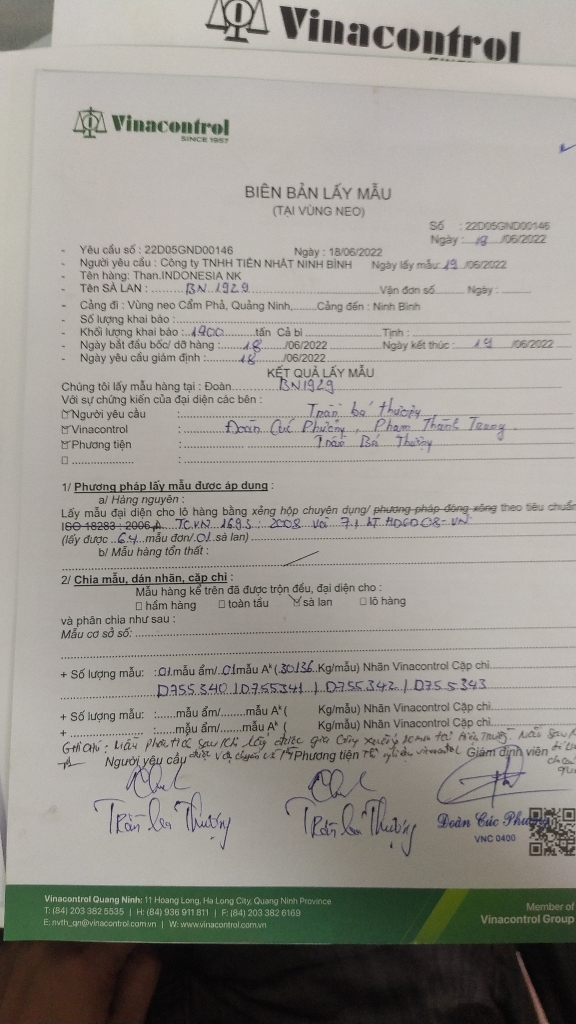 Vinacontrol
Vinacontrol
SINCE 1957
BIÊN BẢN LẤY MẪU
(TẠI VÙNG NEO)
Số : 22D05GND00146
Ngày : 18 /06/2022
- Yêu cầu số : 22D05GND00146 Ngày : 18/06/2022
- Người yêu cầu : Công ty TNHH TIẾN NHẬT NINH BÌNH Ngày lấy mẫu 19 /06/2022
- Tên hàng: Than.INDONESIA NK
- Tên SÀ LAN : BN 1929 Vận đơn số Ngày :
- Cảng đi : Vùng neo Cẩm Phả, Quảng Ninh, Cảng đến : Ninh Bình
- Số lượng khai báo :
- Khối lượng khai báo : 1900 tấn Cả bì Tịnh :
- Ngày bắt đầu bốc/ dỡ hàng : 18 /06/2022 Ngày kết thúc : 19 /06/2022
- Ngày yêu cầu giám định : 18 /06/2022
KẾT QUẢ LẤY MẪU
Chúng tôi lấy mẫu hàng tại : Đoàn BN1929
Với sự chứng kiến của đại diện các bên :
Người yêu cầu : Trần bá thượng
Vinacontrol : Đoàn Cúc Phương, Phạm Thành Trung
Phương tiện : Trần Bá Thượng
1/ Phương pháp lấy mẫu được áp dụng :
a/ Hàng nguyên :
Lấy mẫu đại diện cho lô hàng bằng xẻng hộp chuyên dụng/ phương pháp đóng xông theo tiêu chuẩn
ISO 18283 : 2006 A TCVN 1693 : 2008 với 7.1 HDGD 08-VN
(lấy được 64 mẫu đơn/ 01 sà lan)
b/ Mẫu hàng tổn thất :
2/ Chia mẫu, dán nhãn, cặp chì :
Mẫu hàng kể trên đã được trộn đều, đại diện cho :
□ hầm hàng □ toàn tầu sà lan □ lô hàng
và phân chia như sau :
Mẫu cơ sở số:
+ Số lượng mẫu: : 01 mẫu ẩm/ 01 mẫu Aᵏ ( 30/36 Kg/mẫu) Nhãn Vinacontrol Cặp chì
D755340 / D755341 / D755342 / D755343
+ Số lượng mẫu: :......mẫu ẩm/........mẫu Aᵏ ( Kg/mẫu) Nhãn Vinacontrol Cặp chì
+ :......mẫu ẩm/........mẫu Aᵏ ( Kg/mẫu) Nhãn Vinacontrol Cặp chì
Ghi chú : Mẫu phân tích sau khi lấy được gia công xuống tại hiện trường
Người yêu cầu Phương tiện Giám định viên
Trần bá Thượng Trần bá Thượng Đoàn Cúc Phương
VNC 0400
Vinacontrol Quang Ninh: 11 Hoang Long, Ha Long City, Quang Ninh Province
T: (84) 203 382 5535 | H: (84) 936 911 811 | F: (84) 203 382 6169
E: nvth_qn@vinacontrol.com.vn | W: www.vinacontrol.com.vn
Member of
Vinacontrol Group